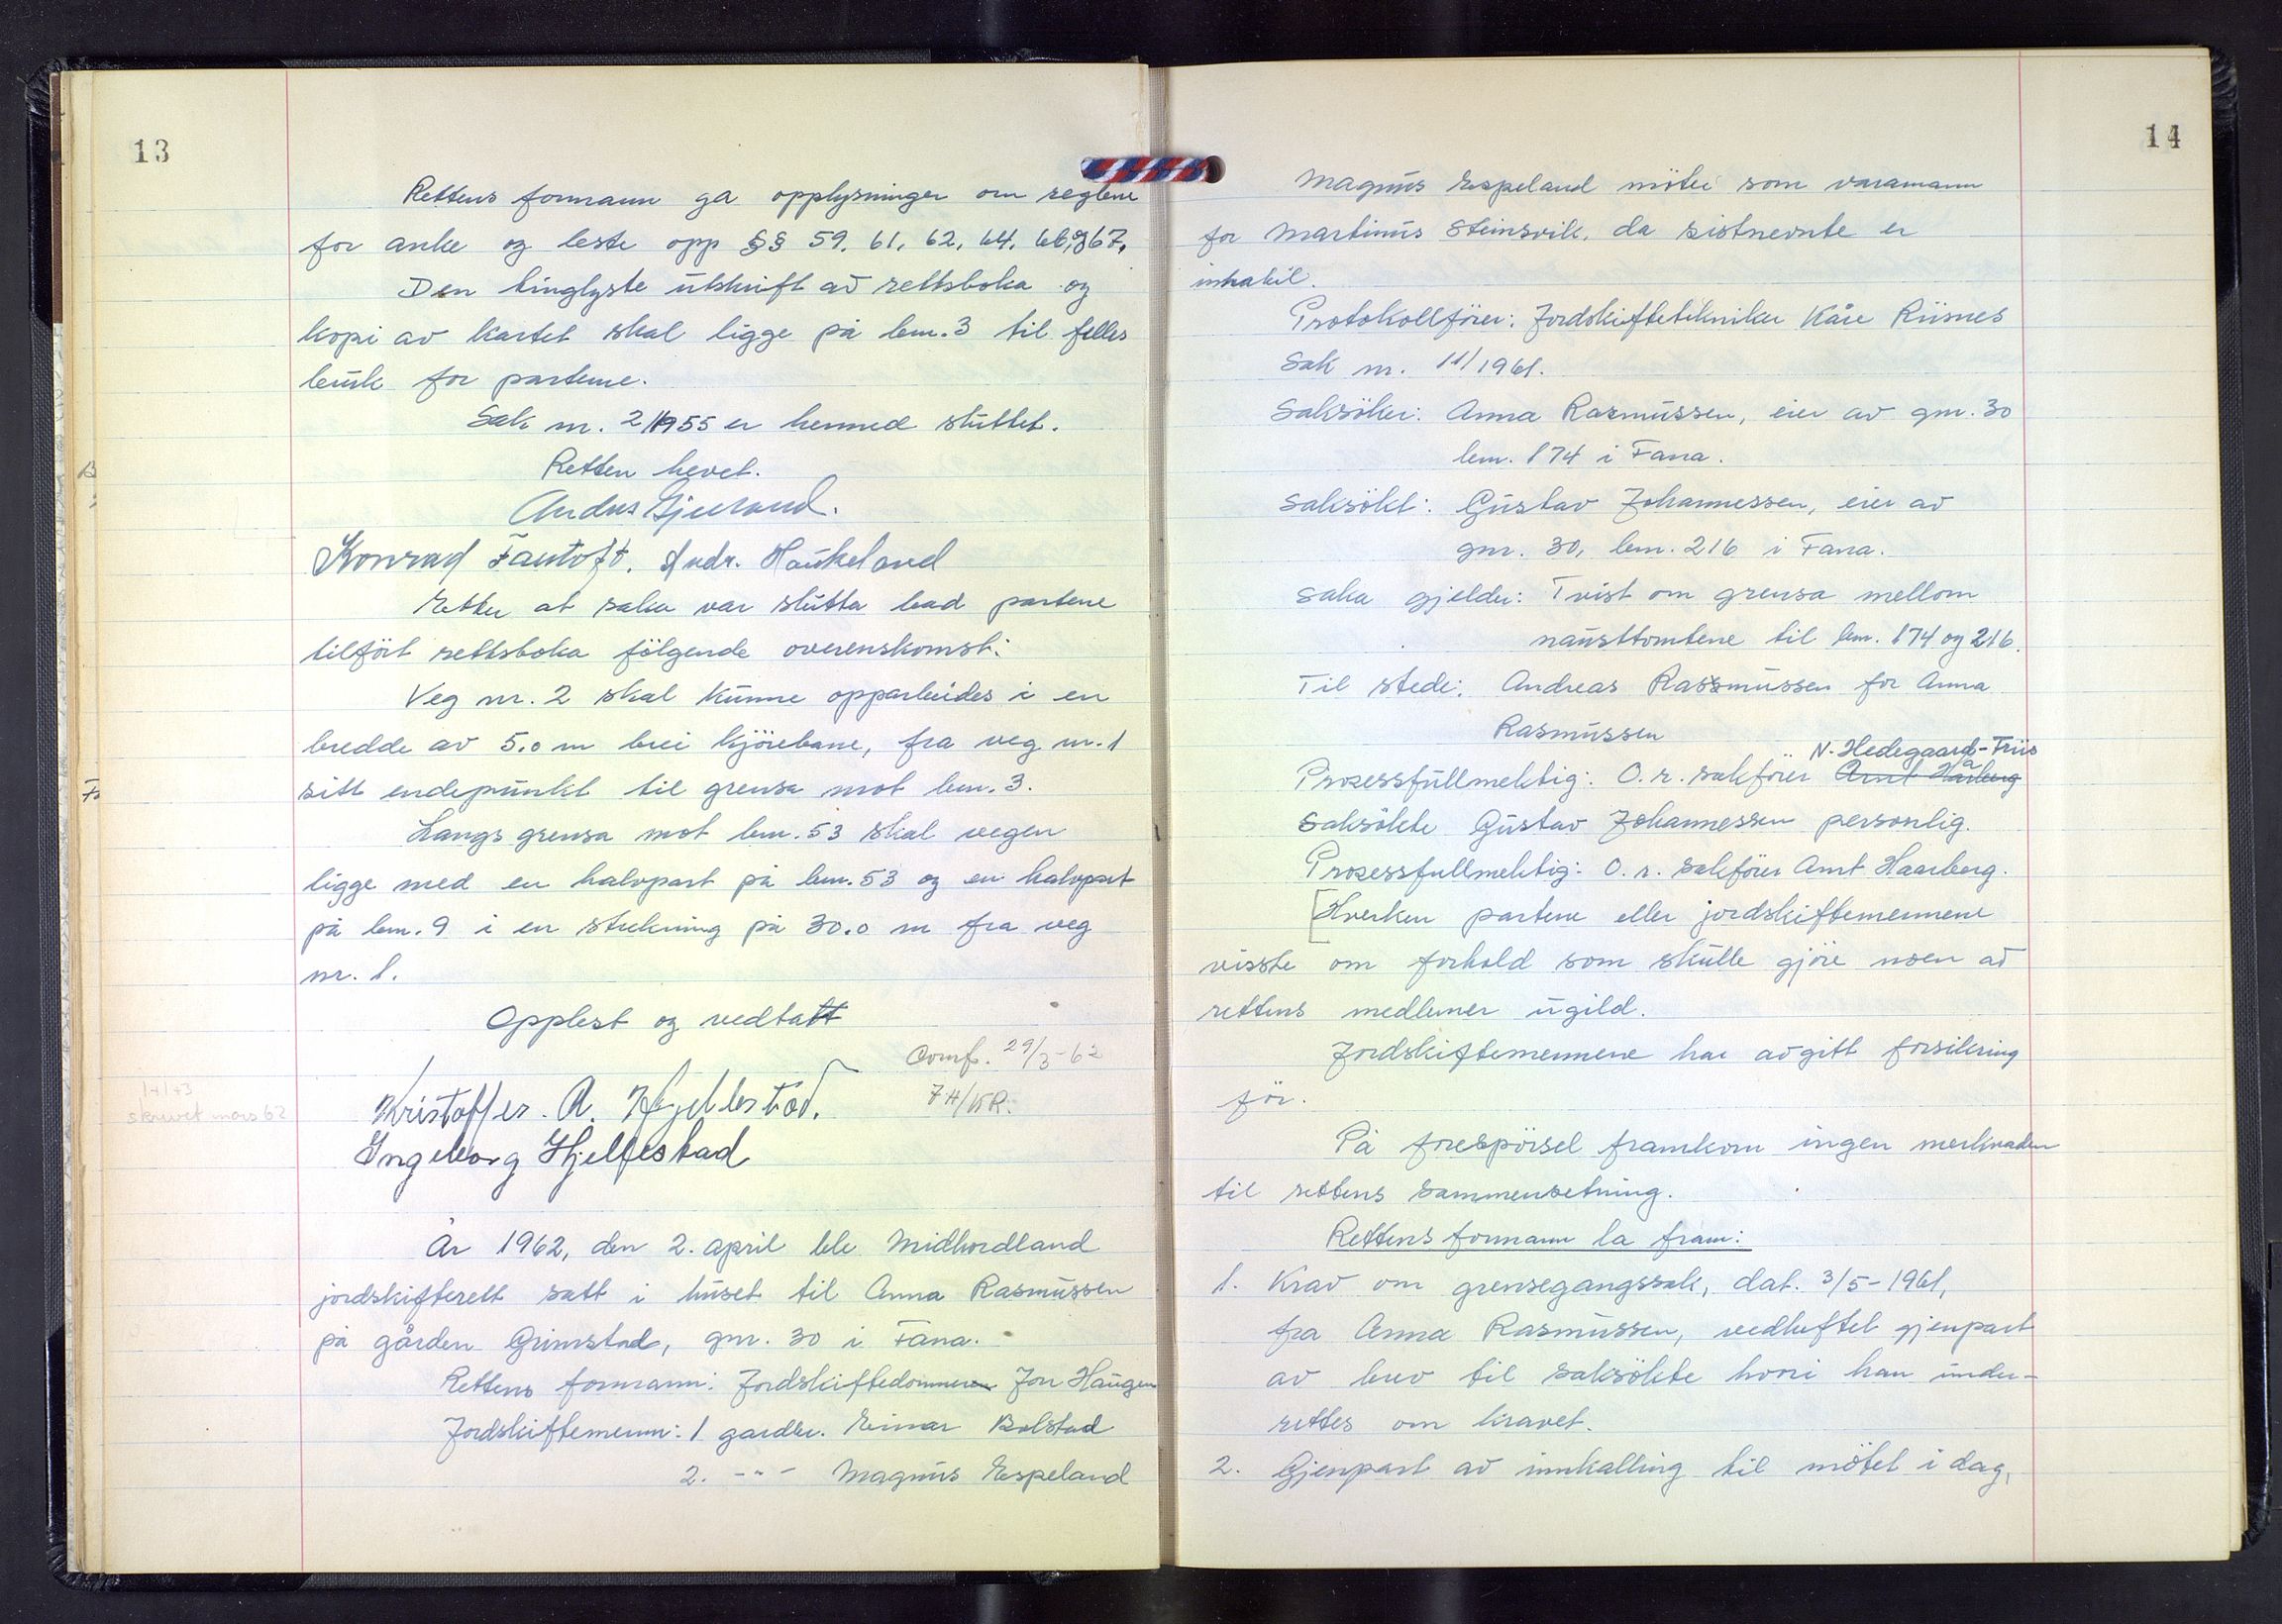 13
Rettens formann ga opplysninger om reglene
for anke og leste opp §§ 59, 61, 62, 64, 66, og 67.
Den tinglyste utskrift av rettsboka og
kopi av kartet skal ligge på bnr. 3 til felles
bruk for partene.
Sak nr. 2/1955 er hermed sluttet.
Retten hevet.
Konrad Fantoft. Andr. Haukeland
Etter at saka var slutta bad partene
tilført rettsboka følgende overenskomst:
Veg nr. 2 skal kunne opparbeides i en
bredde av 5.0 m brei kjörebane, fra veg nr. 1
sitt endepunkt til grensa mot bnr. 3.
Langs grensa mot bnr. 53 skal vegen
ligge med en halvpart på bnr. 53 og en halvpart
på bnr. 9 i en strekning på 30.0 m fra veg
nr. 1.
Opplest og vedtatt
Comf. 29/3-62
JH/KR.
1+1+3
skrevet mars 62
Kristoffer. A. Hjellestad.
Ingeborg Hjellestad
År 1962, den 2. april ble Midhordland
jordskifterett satt i huset til Anna Rasmussen
på gården Grimstad, gnr. 30 i Fana.
Rettens formann: Jordskiftedommeren Jon Haugen
Jordskiftemenn: 1 gardbr. Einar Bolstad
2. -"- Magnus Espeland
14
Magnus Espeland möter som varamann
for Martinus Steinsvik, da sistnevnte er
inhabil.
Protokollförer: Jordskiftetekniker Kåre Riisnes
Sak nr. 11/1961.
Saksöker: Anna Rasmussen, eier av gnr. 30
bnr. 174 i Fana.
Saksökt: Gustav Johannessen, eier av
gnr. 30, bnr. 216 i Fana.
Saka gjelder: Tvist om grensa mellom
nausttomtene til bnr. 174 og 216.
Til stede: Andreas Rassmussen for Anna
Rasmussen
N. Hedegaard-Friis
Prosessfullmektig: O.r. sakförer Arnt Haarberg
Saksökte Gustav Johannessen personlig.
Prosessfullmektig: O.r. sakförer Arnt Haarberg.
[Hverken partene eller jordskiftemennene
visste om forhold som skulle gjöre noen av
rettens medlemer ugild.
Jordskiftemennene har avgitt forsikring
för.
På forespörsel framkom ingen merknader
til rettens sammensetning.
Rettens formann la fram:
1. Krav om grensegangssak, dat. 3/5-1961,
fra Anna Rasmussen, vedheftet gjenpart
av brev til saksökte hvori han under-
rettes om kravet.
2. Gjenpart av innkalling til mötet i dag,